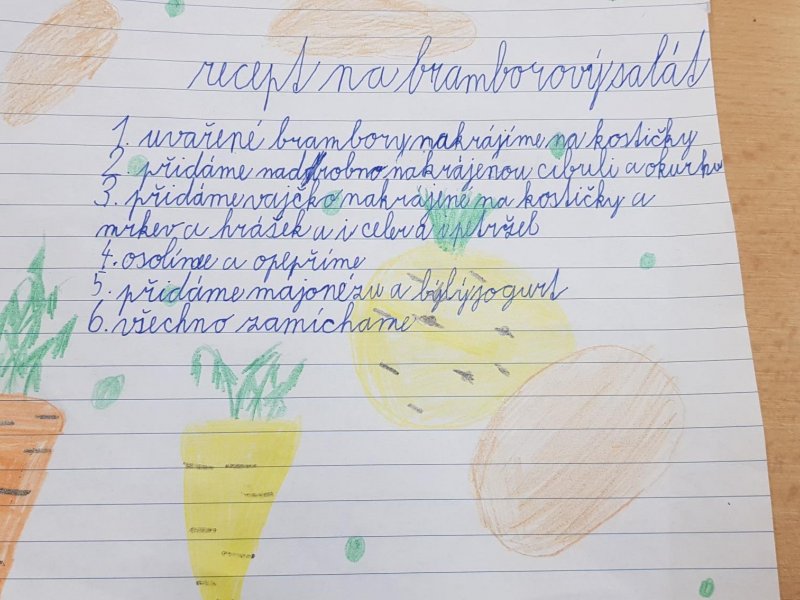 recept na bramborový salát
1. uvařené brambory nakrájíme na kostičky
2. přidáme nadrobno nakrájenou cibuli a okurku
3. přidáme vajčko nakrájené na kostičky a
mrkev a hrášek a i celer a i petržel
4. osolíme a opepříme
5. přidáme majonézu a býlý jogurt
6. všechno zamíchame